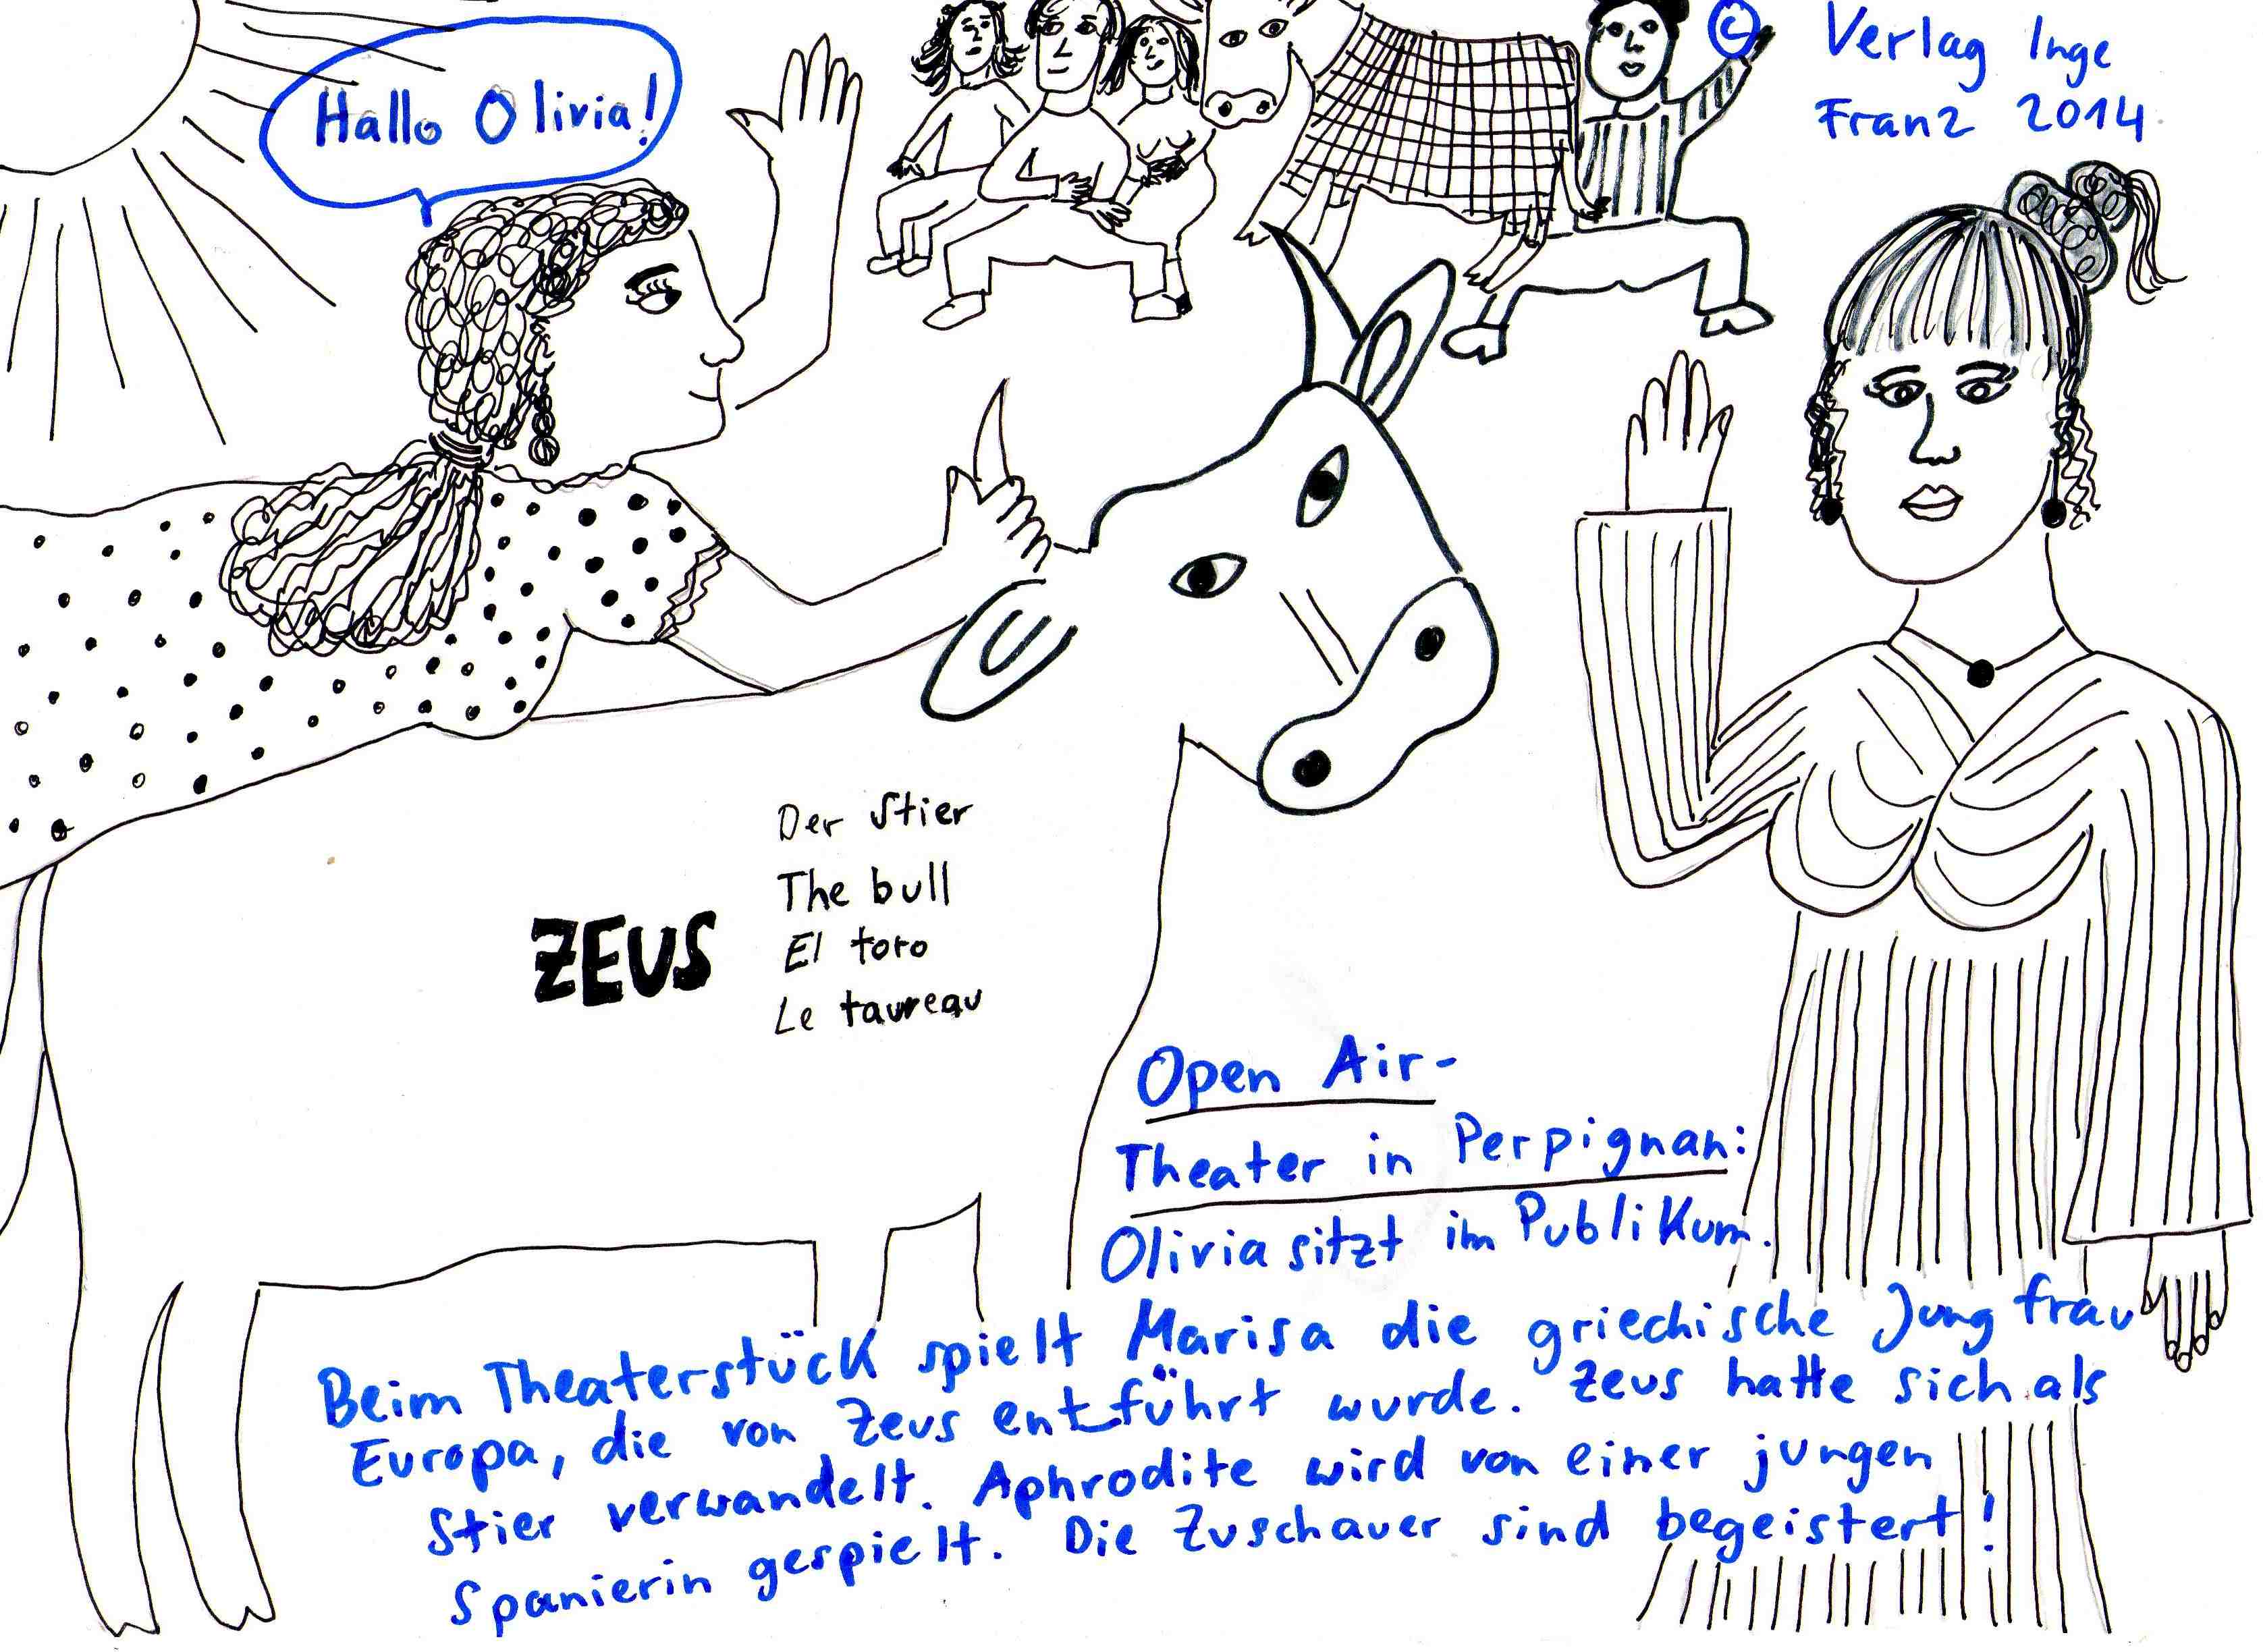 Hallo Olivia!
© Verlag Inge
Franz 2014
ZEUS
Der Stier
The bull
El toro
Le taureau
Open Air-
Theater in Perpignan:
Olivia sitzt im Publikum.
Beim Theaterstück spielt Marisa die griechische Jungfrau
Europa, die von Zeus entführt wurde. Zeus hatte sich als
Stier verwandelt. Aphrodite wird von einer jungen
Spanierin gespielt. Die Zuschauer sind begeistert!